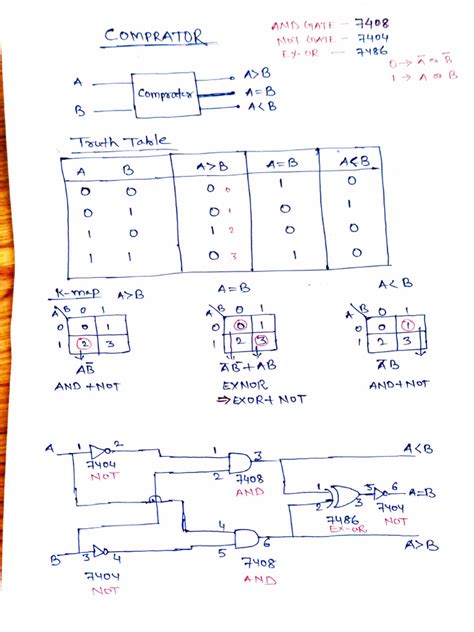 COMPRATOR
AND GATE - 7408
NOT GATE - 7404
EX-OR - 7486
0 → A̅ or B̅
1 → A or B
A
B
Comprator
A>B
A=B
A<B
Truth Table
A B A>B A=B A<B
0 0 0 0 1 0
0 1 0 1 0 1
1 0 1 2 0 0
1 1 0 3 1 0
K-map A>B
A=B
A<B
A B 0 1
0 0 1
1 2 3
AB̅
AND + NOT
A B 0 1
0 0 1
1 2 3
A̅B̅ + AB
EXNOR
⇒ EXOR + NOT
A B 0 1
0 0 1
1 2 3
A̅B
AND + NOT
A 1 2
7404
NOT
1 2 3
7408
AND
A<B
1 2 3
7486
EX-OR
5 6
7404
NOT
A=B
B 3 4
7404
NOT
4 5 6
7408
AND
A>B